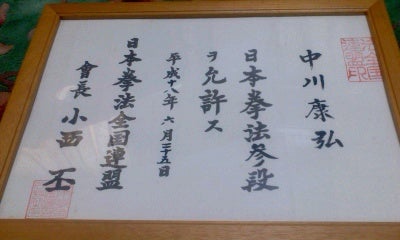 中川康弘
日本拳法参段
ヲ允許ス
平成十八年六月二十五日
日本拳法全国連盟
會長 小西丕